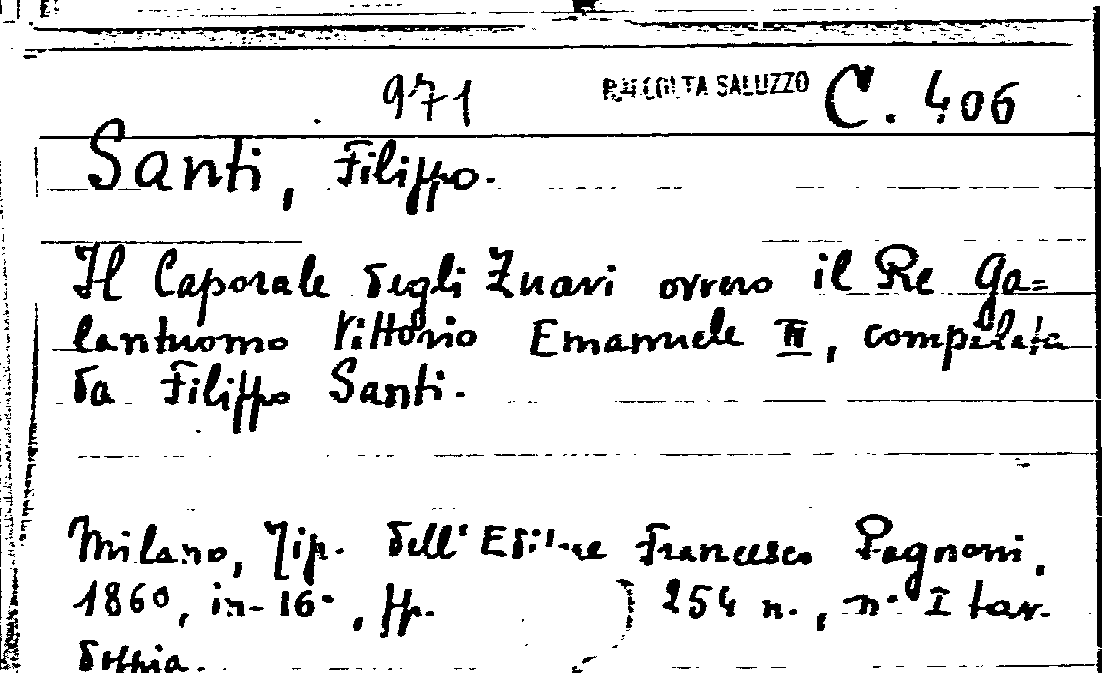 971 RACCOLTA SALUZZO C. 406
Santi, Filippo.
Il Caporale degli Zuavi ovvero il Re Ga=
lantuomo Vittorio Emanuele II, compilata
da Filippo Santi.
Milano, Tip. dell'Editore Francesco Pagnoni,
1860, in-16°, pp. 254 n., n° I tav.
doppia.